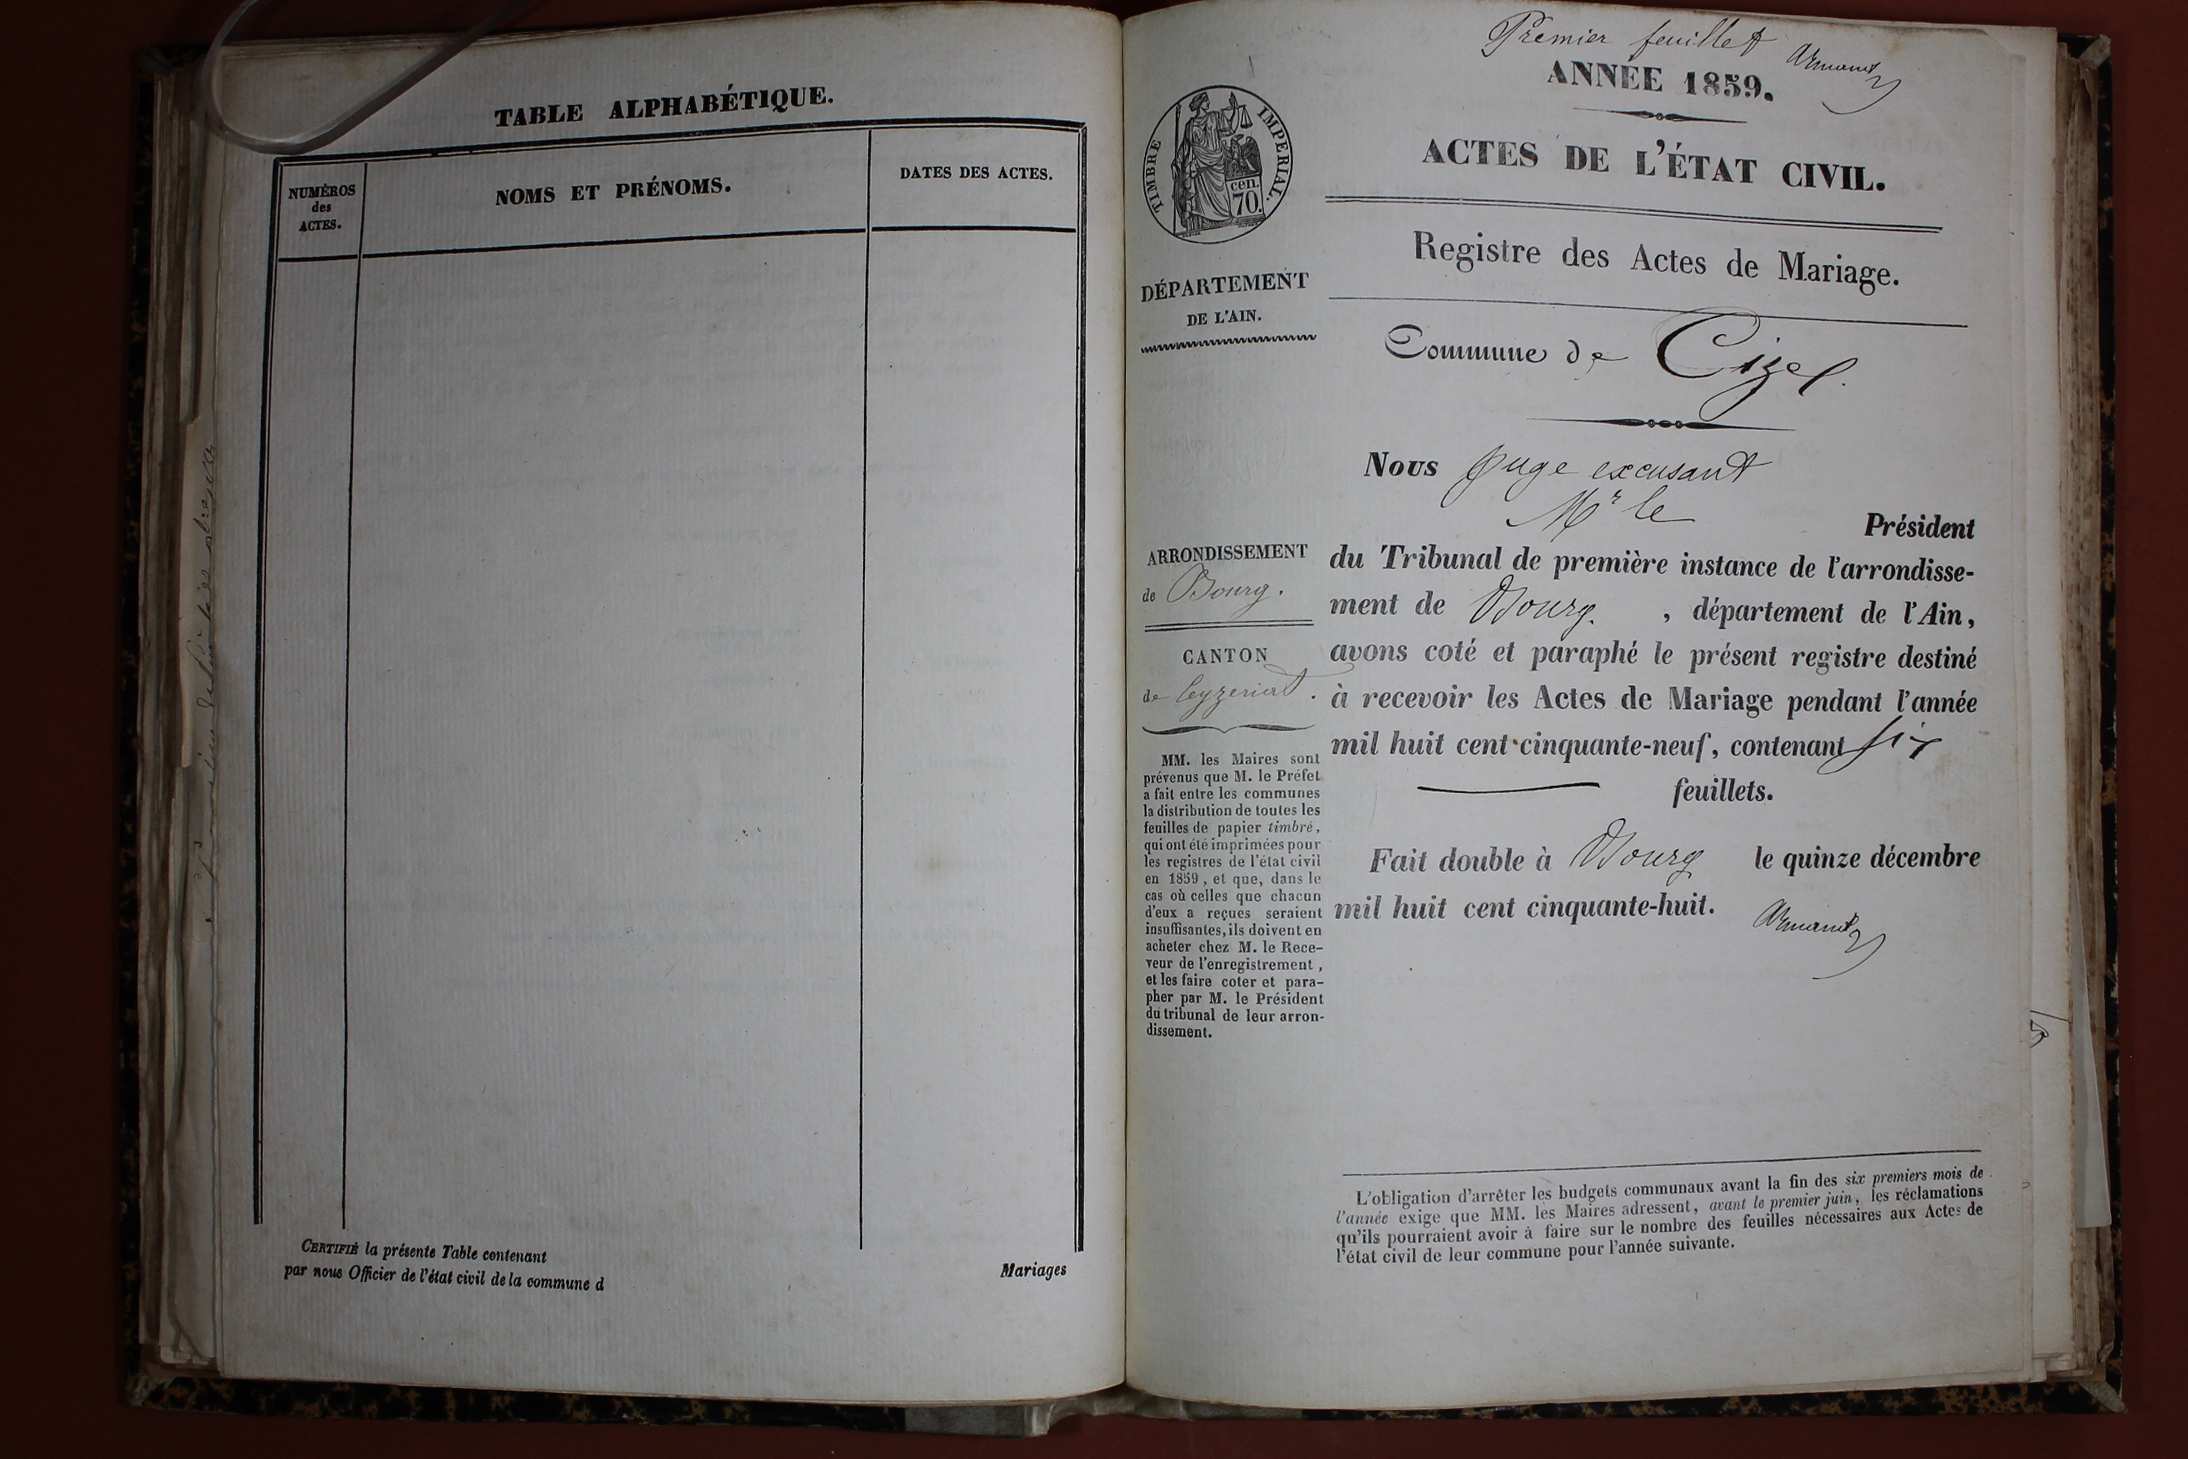 TABLE ALPHABÉTIQUE.
NUMÉROS
des
ACTES.
NOMS ET PRÉNOMS.
DATES DES ACTES.
CERTIFIÉ la présente Table contenant
Mariages
par nous Officier de l'état civil de la commune d
Premier feuillet
ANNÉE 1859.
ACTES DE L'ÉTAT CIVIL.
TIMBRE IMPERIAL.
cen.
70.
DÉPARTEMENT
DE L'AIN.
ARRONDISSEMENT
de Bourg.
CANTON
de Ceyzeriat.
MM. les Maires sont
prévenus que M. le Préfet
a fait entre les communes
la distribution de toutes les
feuilles de papier timbré,
qui ont été imprimées pour
les registres de l'état civil
en 1859, et que, dans le
cas où celles que chacun
d'eux a reçues seraient
insuffisantes, ils doivent en
acheter chez M. le Rece-
veur de l'enregistrement,
et les faire coter et para-
pher par M. le Président
du tribunal de leur arron-
dissement.
Registre des Actes de Mariage.
Commune de Cizel.
Nous juge excusant
Mr le
Président
du Tribunal de première instance de l'arrondisse-
ment de Bourg. , département de l'Ain,
avons coté et paraphé le présent registre destiné
à recevoir les Actes de Mariage pendant l'année
mil huit cent cinquante-neuf, contenant six
feuillets.
Fait double à Bourg le quinze décembre
mil huit cent cinquante-huit.
L'obligation d'arrêter les budgets communaux avant la fin des six premiers mois de
l'année exige que MM. les Maires adressent, avant le premier juin, les réclamations
qu'ils pourraient avoir à faire sur le nombre des feuilles nécessaires aux Actes de
l'état civil de leur commune pour l'année suivante.